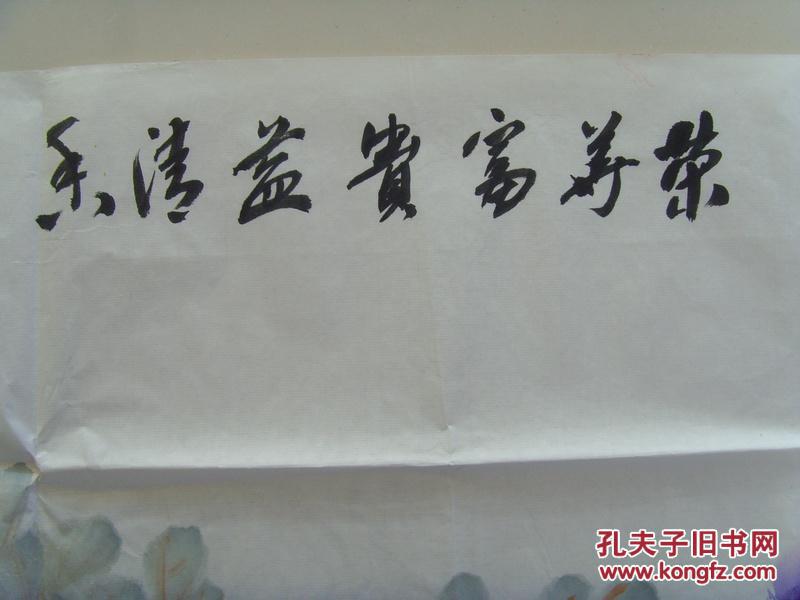 荣华富貴益清香
孔夫子旧书网
www.kongfz.com